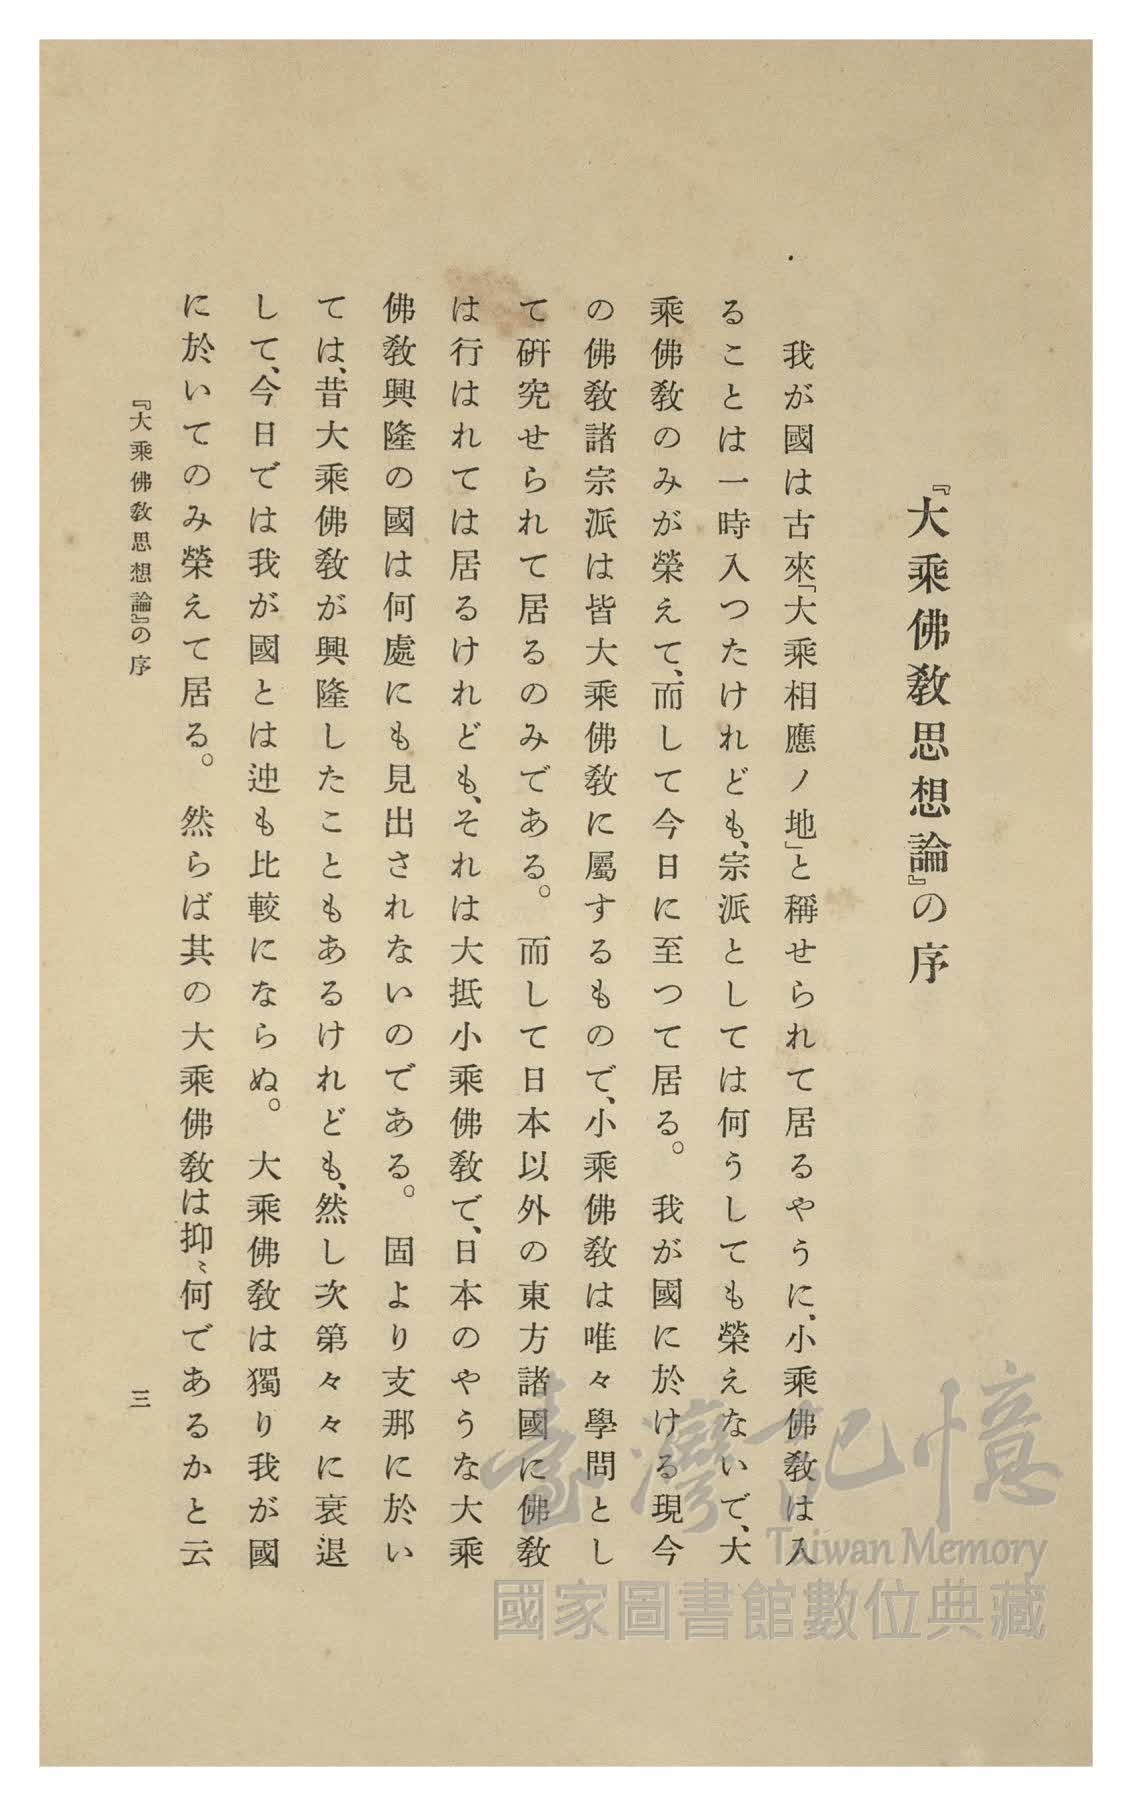 『大乘佛敎思想論』の序
我が國は古來「大乘相應ノ地」と稱せられて居るやうに、小乘佛敎は入
ることは一時入つたけれども、宗派としては何うしても榮えないで、大
乘佛敎のみが榮えて、而して今日に至つて居る。我が國に於ける現今
の佛敎諸宗派は皆大乘佛敎に屬するもので、小乘佛敎は唯々學問とし
て硏究せられて居るのみである。而して日本以外の東方諸國に佛敎
は行はれては居るけれども、それは大抵小乘佛敎で、日本のやうな大乘
佛敎興隆の國は何處にも見出されないのである。固より支那に於い
ては、昔大乘佛敎が興隆したこともあるけれども、然し次第々々に衰退
して、今日では我が國とは迚も比較にならぬ。大乘佛敎は獨り我が國
に於いてのみ榮えて居る。然らば其の大乘佛敎は抑〻何であるかと云
『大乘佛敎思想論』の序
三
臺灣記憶
Taiwan Memory
國家圖書館數位典藏